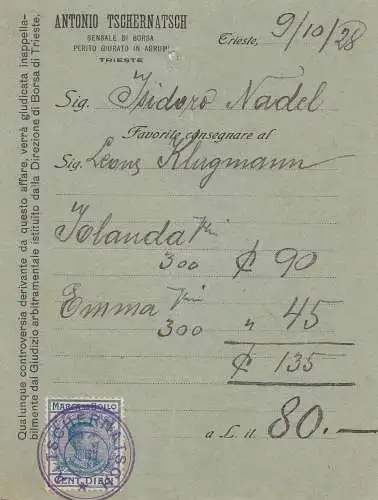 ANTONIO TSCHERNATSCH
SENSALE DI BORSA
PERITO GIURATO IN AGRUMI
TRIESTE
Trieste, 9/10/28
Sig. Isidoro Nadel
Favorite consegnare al
Sig. Leone Klugmann
Iolanda
300 ₵ 90
Emma
300 " 45
₵ 135
a L. it. 80.—
MARCA DA BOLLO
CENT. DIECI
TSCHERNATSCH
Qualunque controversia derivante da questo affare, verrà giudicata inappella-
bilmente dal Giudizio arbitramentale istituito dalla Direzione di Borsa di Trieste.